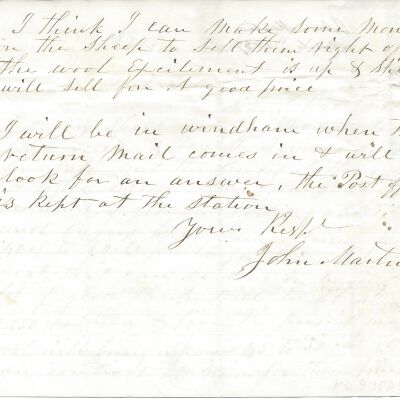 I think I can make some mon
on the sheep to sell them right of
the wool Excitement is up & Sh
will sell for A good price
I will be in windham when t
return mail comes in & will
look for an answer, the Post of
is kept at the station
Yours Resp
John Martin